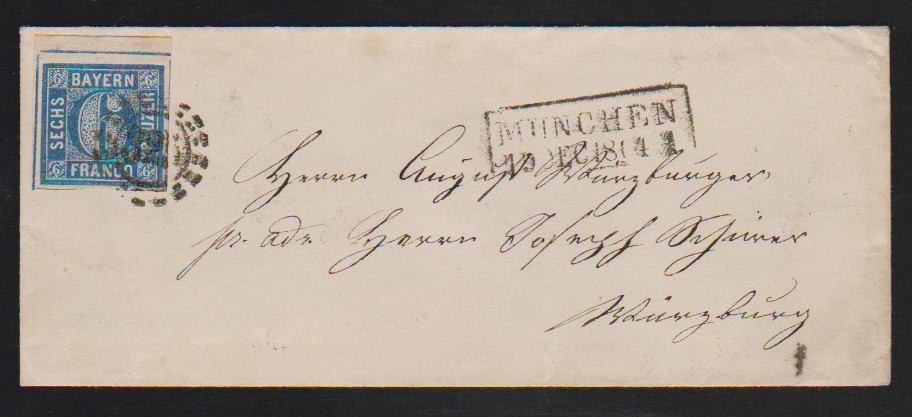 BAYERN
SECHS
KREUZER
FRANCO
6
6
6
6
6
MÜNCHEN
DEC 1864
Herrn August Würzburger,
pr. adr. Herrn Joseph Schürer
Würzburg